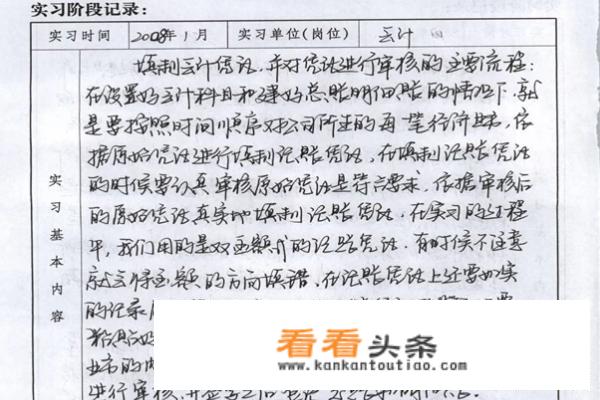 实习阶段记录:
实习时间 2008年1月 实习单位(岗位) 会计
填制会计凭证,并对凭证进行审核的主要流程:
在设置好会计科目和建好总账明细账的情况下,就
是要按照时间顺序对公司所发生的每一笔经济业务,依
据原始凭证进行填制记账凭证,在填制记账凭证
的时候要认真审核原始凭证是否符合要求,依据审核后
的原始凭证真实地填制记账凭证,在实习的过程
中,我们用的是双金额式的记账凭证.有时候不注意
就会将金额的方向填错,在记账凭证上还要如实
的记录
粘贴好
业务的内
进行审核,并签
实习基本内容
看看头条
www.kankantoutiao.com